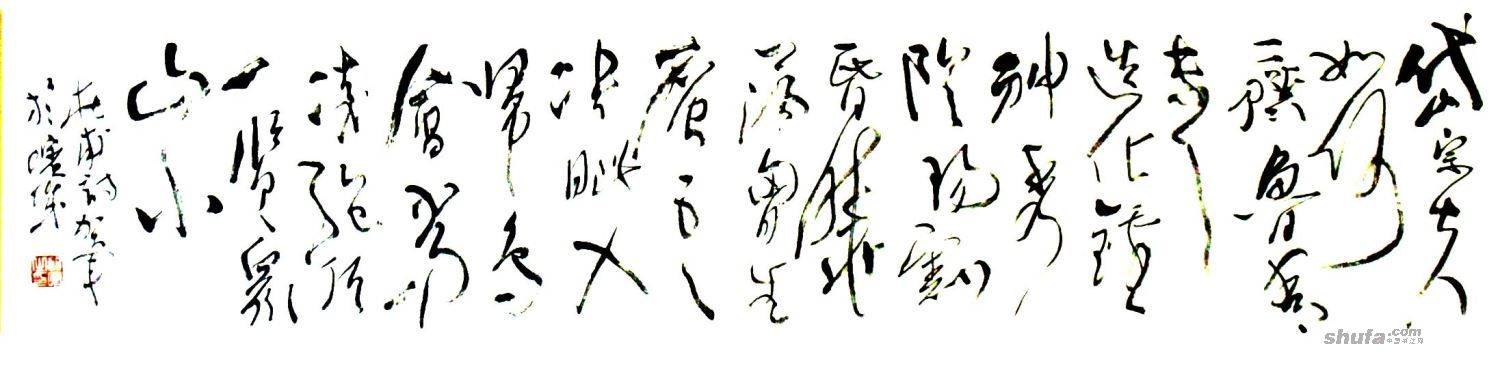 岱宗夫
如何
齊魯青
未了
造化鍾
神秀
陰陽割
昏曉
蕩胸生
層云
決眦入
歸鳥
會當
凌絕頂
一覽眾
山小
杜甫詩
於
shufa.com